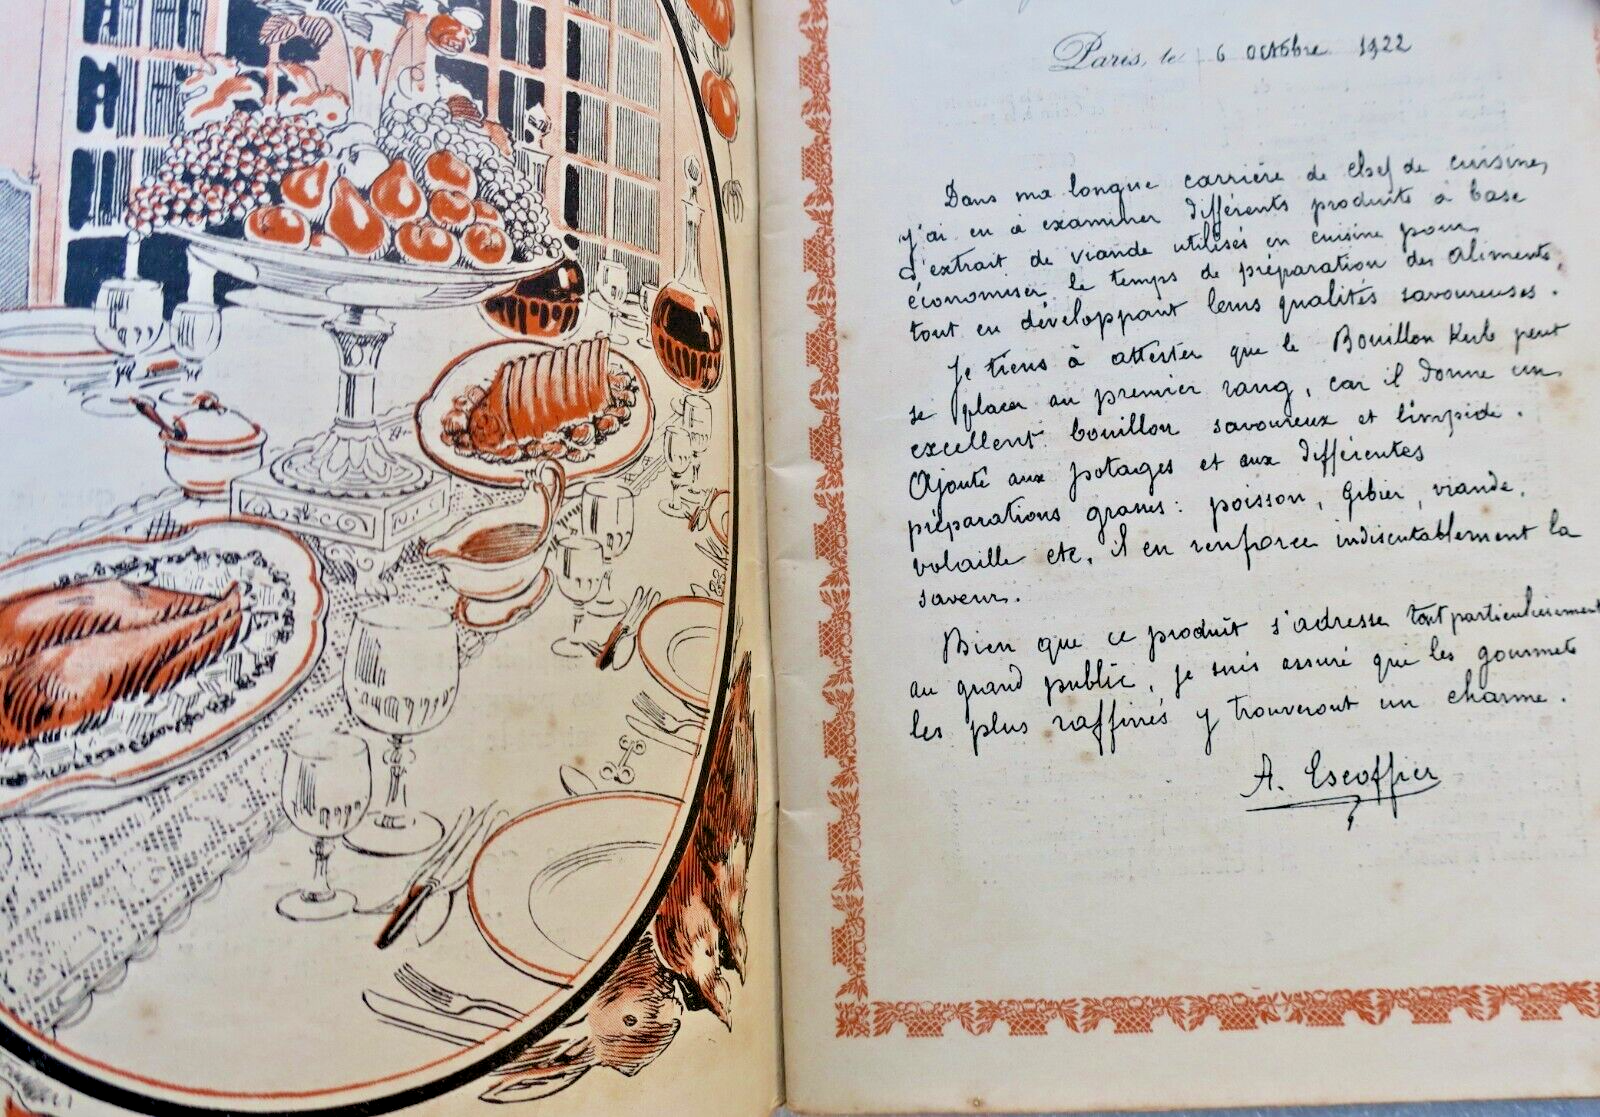 Paris, le 6 octobre 1922
Dans ma longue carrière de chef de cuisine,
j'ai eu à examiner différents produits à base
d'extrait de viande utilisés en cuisine pour
économiser le temps de préparation des aliments,
tout en développant leurs qualités savoureuses.
Je tiens à attester que le Bouillon Kub peut
se placer au premier rang, car il donne un
excellent bouillon savoureux et limpide.
Ajouté aux potages et aux différentes
préparations grasses: poisson, gibier, viande,
volaille etc, il en renforce indiscutablement la
saveur.
Bien que ce produit s'adresse tout particulièrement
au grand public, je suis assuré que les gourmets
les plus raffinés y trouveront un charme.
A. Escoffier